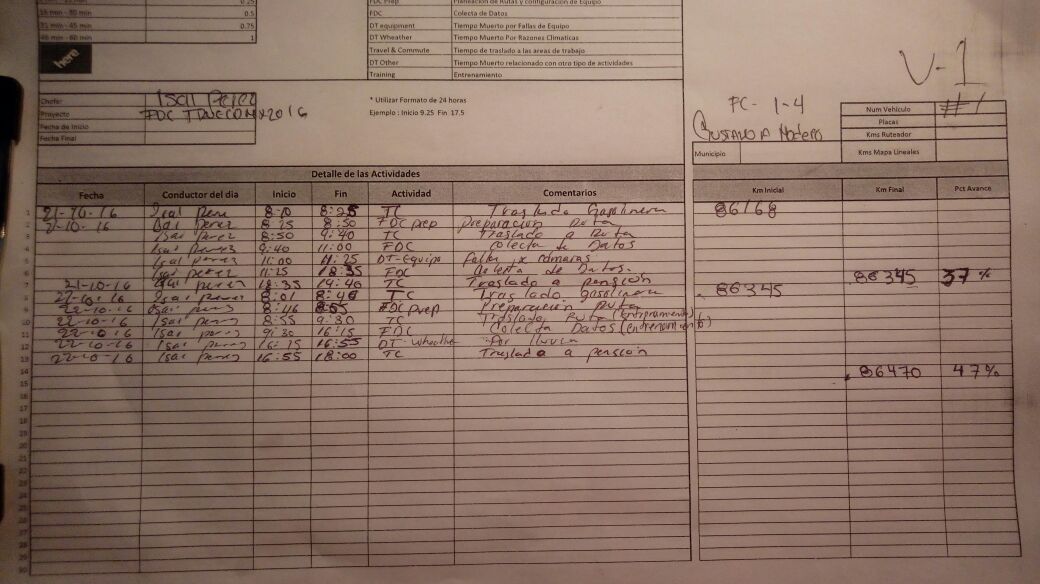 0.25
16 min - 30 min 0.5
31 min - 45 min 0.75
46 min - 60 min 1
here
FDC Prep Planeacion de Rutas y configuracion de Equipo
FDC Colecta de Datos
DT equipment Tiempo Muerto por Fallas de Equipo
DT Wheather Tiempo Muerto Por Razones Climaticas
Travel & Commute Tiempo de traslado a las areas de trabajo
DT Other Tiempo Muerto relacionado con otro tipo de actividades
Training Entrenamiento
V-1
Chofer Isai Perez
Proyecto FDC 2016
Fecha de Inicio
Fecha Final
* Utilizar Formato de 24 horas
Ejemplo : Inicio 9.25 Fin 17.5
PC- 1-4
Gustavo A Madero
Municipio
Num Vehículo #1
Placas
Kms Ruteador
Kms Mapa Lineales
Detalle de las Actividades
Fecha Conductor del dia Inicio Fin Actividad Comentarios Km Inicial Km Final Pct Avance
1 21-10-16 Isai Perez 8:10 8:25 TC Traslado Gasolinera 86168
2 21-10-16 Isai Perez 8:25 8:50 FDC prep Preparacion Ruta
3 Isai Perez 8:50 9:40 TC Traslado a Ruta
4 Isai Perez 9:40 11:00 FDC Colecta de Datos
5 Isai Perez 11:00 11:25 DT-Equipo Falla x camaras
6 Isai Perez 11:25 18:35 FDC Colecta de Datos.
7 21-10-16 Isai Perez 18:35 19:40 TC Traslado a pensión 86345 37%
8 22-10-16 Isai Perez 8:01 8:46 TC traslado gasolinera 86345
9 22-10-16 Isai Perez 8:46 8:55 FDC prep Preparación Ruta
10 22-10-16 Isai Perez 8:55 9:30 TC Traslado Ruta (entrenamiento)
11 22-10-16 Isai Perez 9:30 16:15 FDC Colecta Datos (entrenamiento)
12 22-10-16 Isai Perez 16:15 16:55 DT-Wheather Por lluvia
13 22-10-16 Isai Perez 16:55 18:00 TC Traslado a pensión
14 86470 47%
15
16
17
18
19
20
21
22
23
24
25
26
27
28
29
30